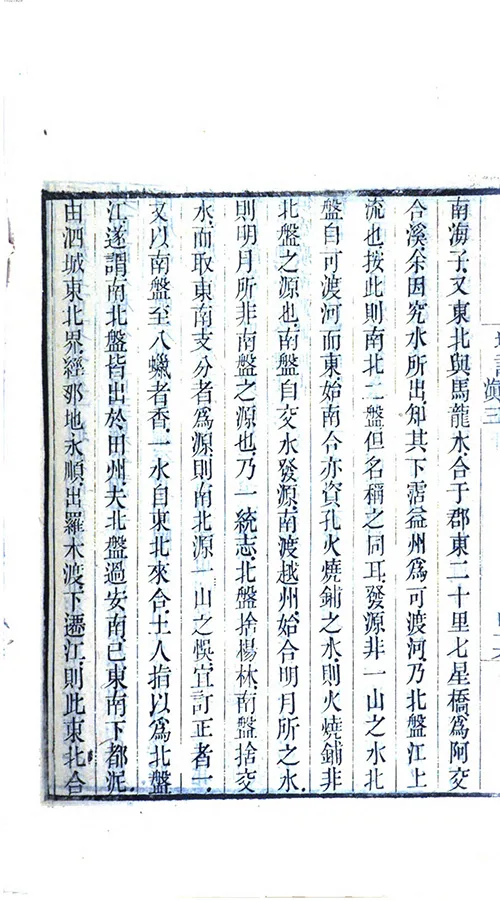 南海子又東北與馬龍水合于郡東二十里七星橋爲阿交
合溪余因究水所出知其下霑益州爲可渡河乃北盤江上
流也按此則南北二盤但名稱之同耳發源非一山之水北
盤自可渡河而東始南合亦資孔火燒鋪之水則火燒鋪非
北盤之源也南盤自交水發源南渡越州始合明月所之水
則明月所非南盤之源也乃一統志北盤捨楊林南盤捨交
水而取東南支分者爲源則南北源一山之悞宜訂正者一
又以南盤至八蠟者香一水自東北來合土人指以爲北盤
江遂謂南北盤皆出於田州夫北盤過安南已東南下都泥
由泗城東北界經那地永順出羅木渡下遷江則此東北合